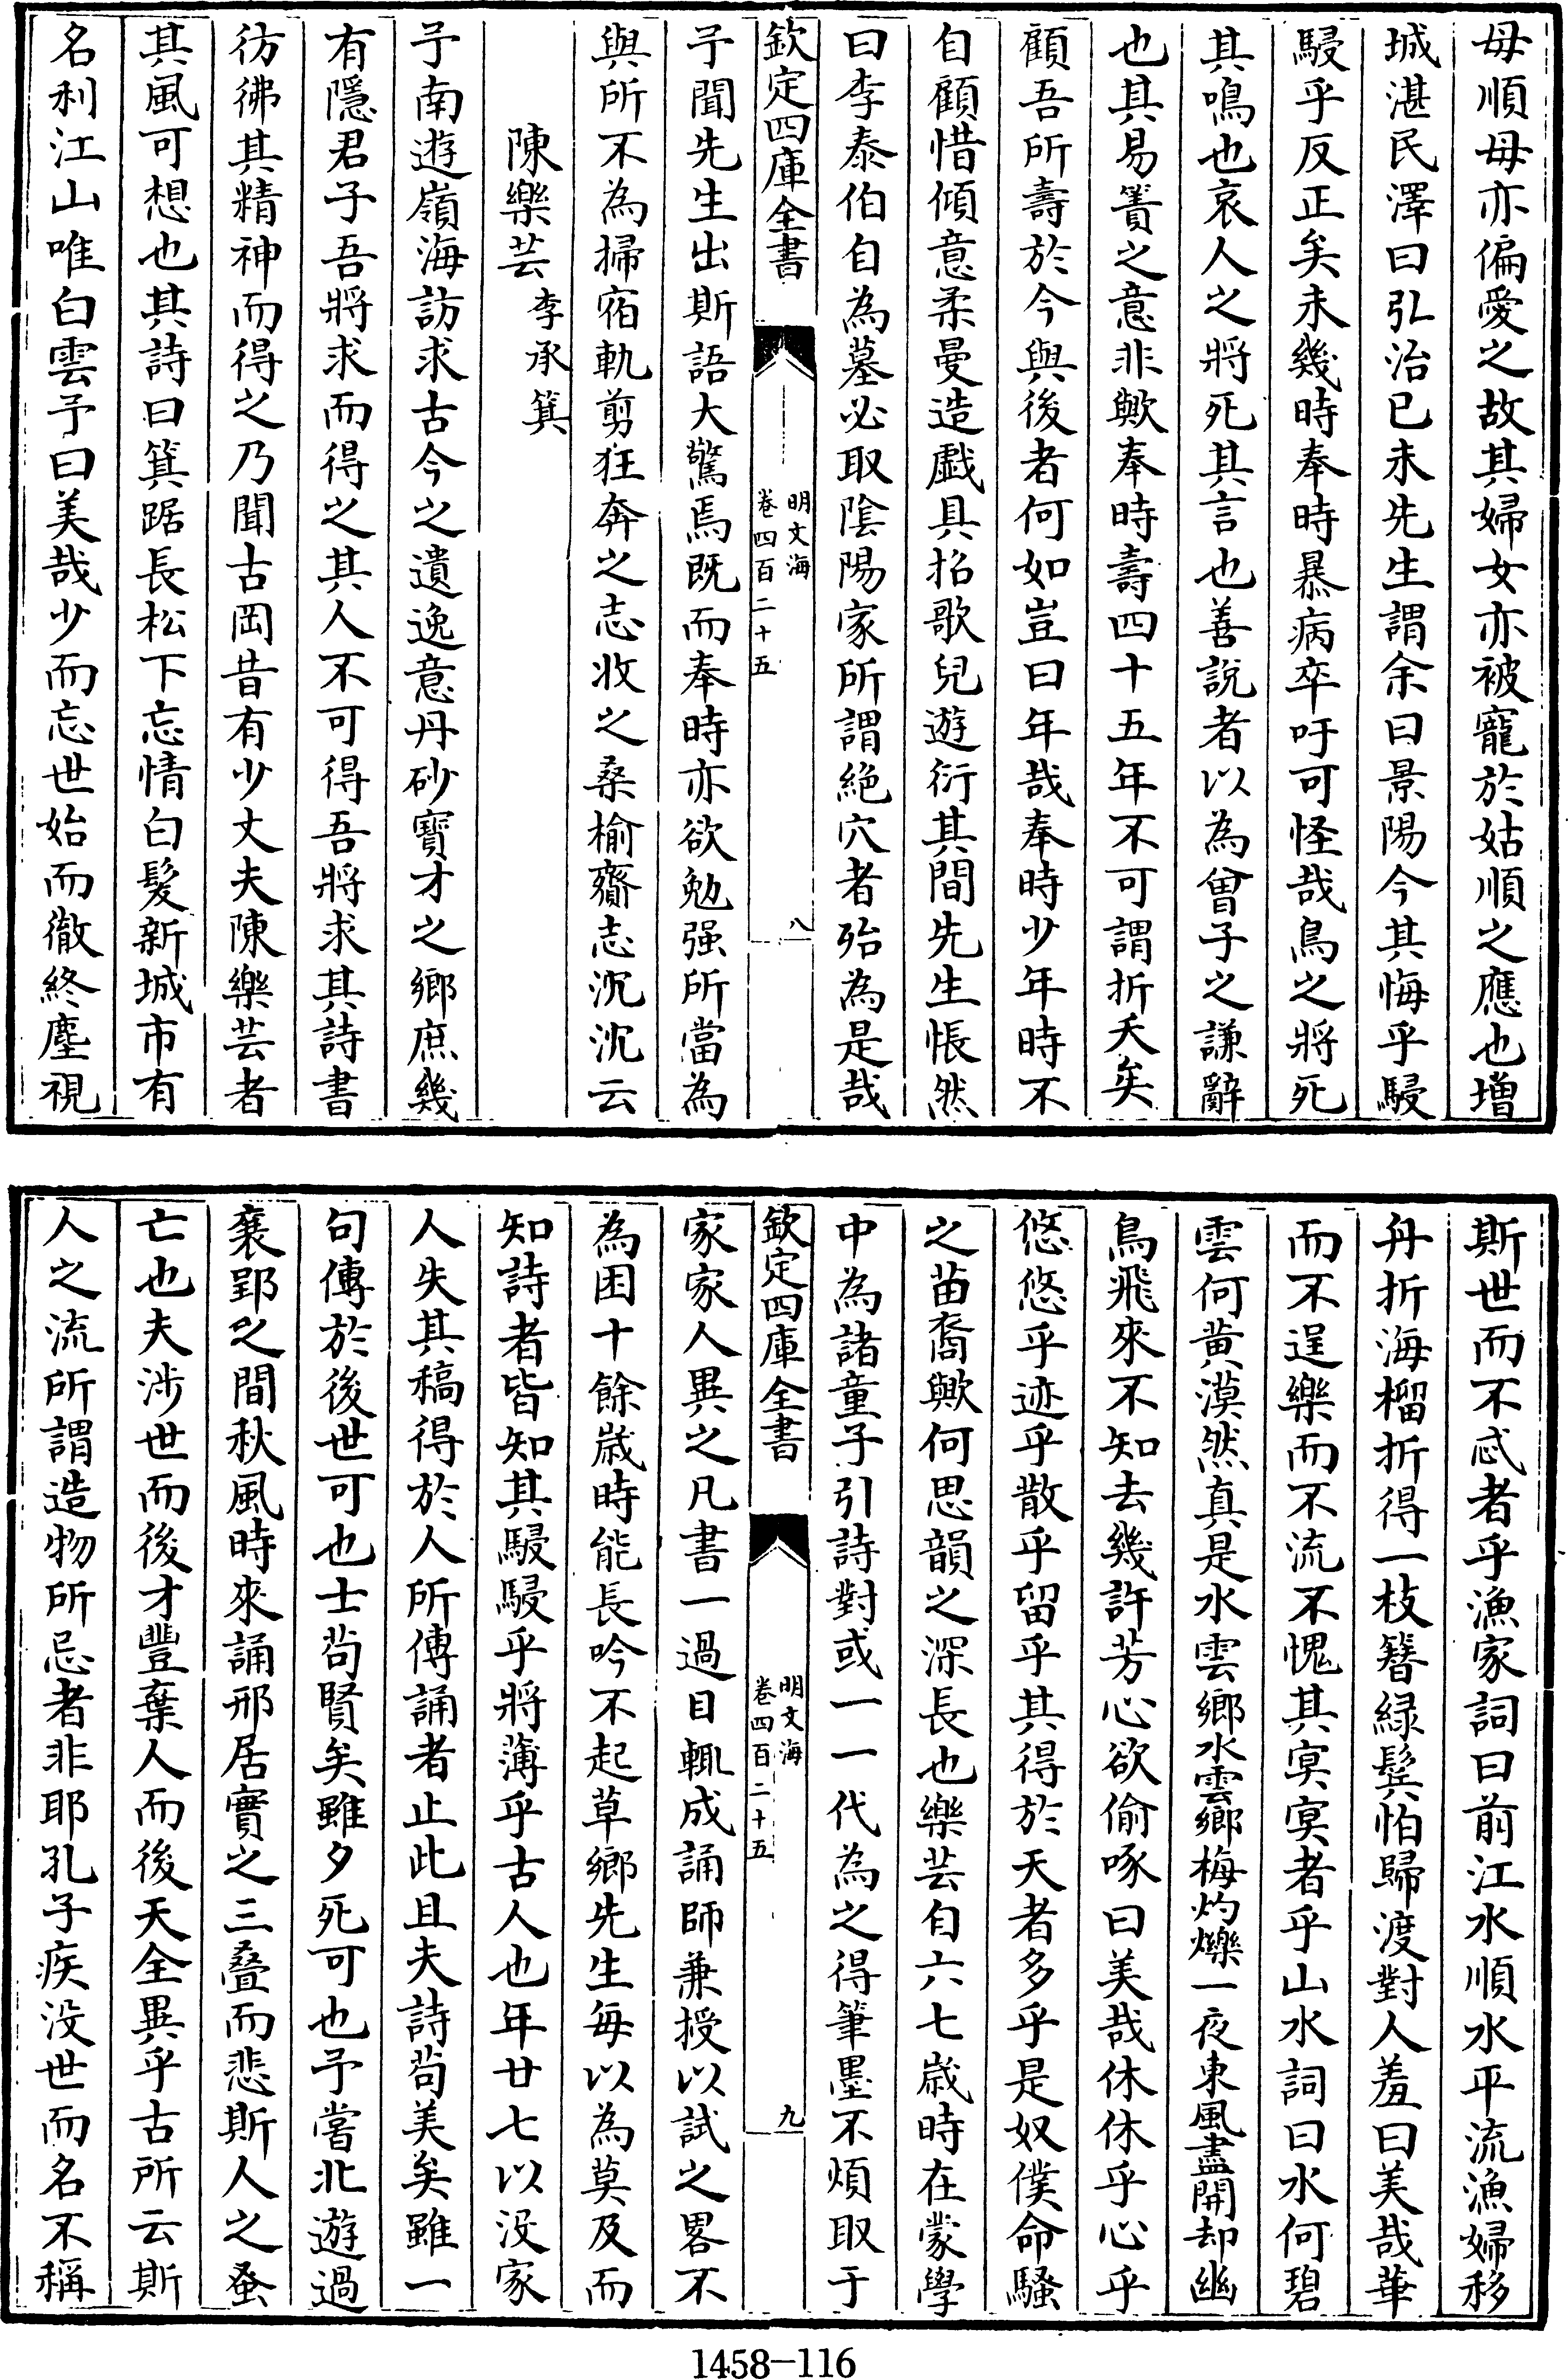 母順母亦偏愛之故其婦女亦被寵於姑順之應也增
城湛民澤曰弘治己未先生謂余曰景陽今其悔乎駸
駸乎反正矣未幾時奉時暴病卒吁可怪哉鳥之將死
其鳴也哀人之將死其言也善說者以為曾子之謙辭
也其易簀之意非歟奉時壽四十五年不可謂折夭矣
顧吾所壽於今與後者何如豈曰年哉奉時少年時不
自顧惜傾意柔曼造戲具招歌兒遊衍其間先生悵然
曰李泰伯自為墓必取陰陽家所謂絶穴者殆為是哉
欽定四庫全書
明文海
卷四百二十五
八
予聞先生出斯語大驚焉既而奉時亦欲勉强所當為
與所不為掃宿軌剪狂奔之志收之桑榆齎志沉沉云
陳樂芸李承箕
予南遊嶺海訪求古今之遺逸意丹砂寶才之鄉庶幾
有隱君子吾將求而得之其人不可得吾將求其詩書
彷彿其精神而得之乃聞古岡昔有少丈夫陳樂芸者
其風可想也其詩曰箕踞長松下忘情白髮新城市有
名利江山唯白雲予曰美哉少而忘世始而徹終塵視
斯世而不忒者乎漁家詞曰前江水順水平流漁婦移
舟折海榴折得一枝簪緑鬓怕歸渡對人羞曰美哉華
而不逞樂而不流不愧其㝠㝠者乎山水詞曰水何碧
雲何黄漠然真是水雲鄉水雲鄉梅灼爍一夜東風盡開却幽
鳥飛來不知去幾許芳心欲偷啄曰美哉休休乎心乎
悠悠乎迹乎散乎留乎其得於天者多乎是奴僕命騷
之苗裔歟何思韻之深長也樂芸自六七歲時在蒙學
中為諸童子引詩對或一一代為之得筆墨不煩取于
欽定四庫全書
明文海
卷四百二十五
九
家家人異之凡書一過目輒成誦師兼授以試之畧不
為困十餘歲時能長吟不起草鄉先生每以為莫及而
知詩者皆知其駸駸乎將薄乎古人也年廿七以没家
人失其稿得於人所傳誦者止此且夫詩茍美矣雖一
句傳於後世可也士茍賢矣雖夕死可也予嘗北遊過
襄郢之間秋風時來誦邢居實之三叠而悲斯人之蚤
亡也夫涉世而後才豐棄人而後天全異乎古所云斯
人之流所謂造物所忌者非耶孔子疾没世而名不稱
1458-116